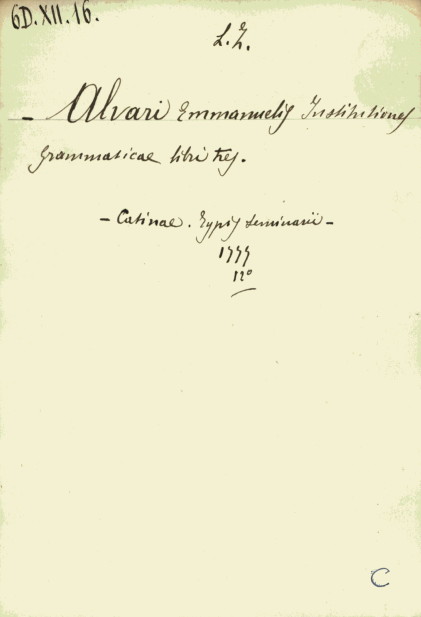 6D.XII.16.
L.Z.
- Alvari Emmanuelis Institutiones
grammaticae libri tres.
- Catinae. Typis Seminarii -
1777
12º
C